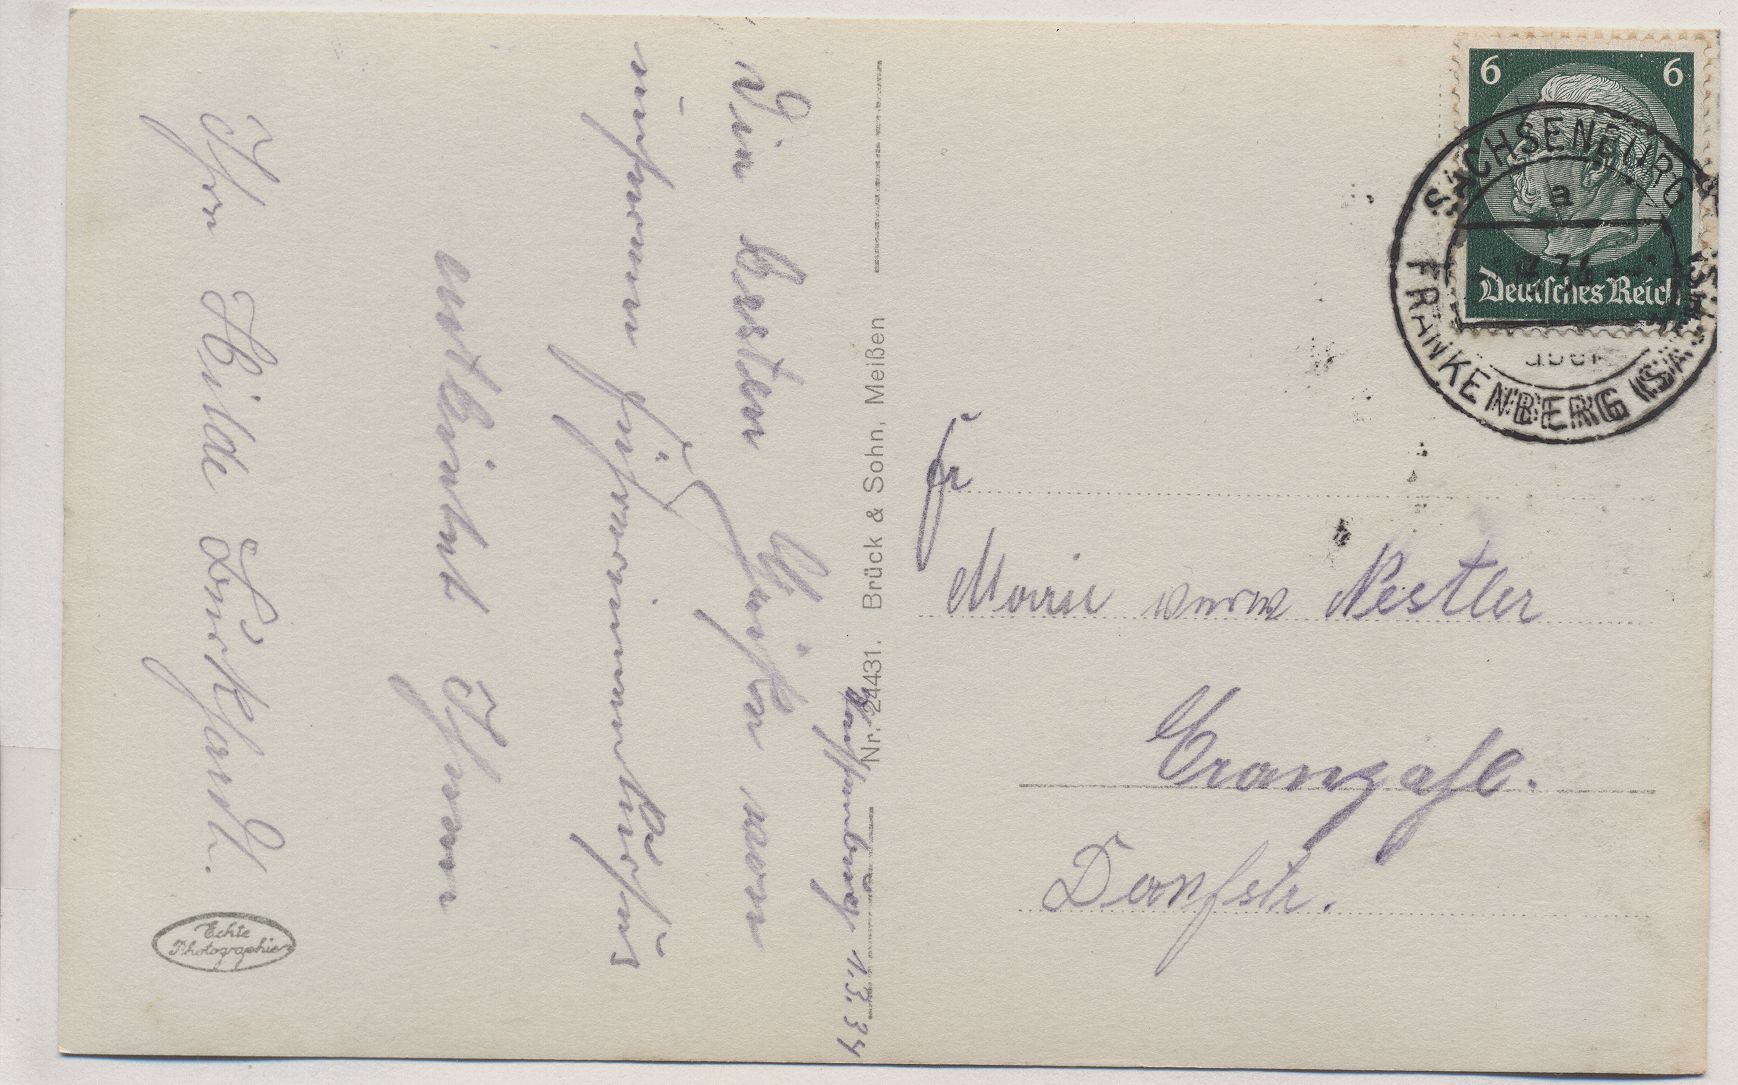 Sachsenburg 1.3.34
Die besten Grüße von
unserem
entbietet Ihnen
Ihre Hilde Burkhardt.
Echte
Photographie
Nr. 24431. Brück & Sohn, Meißen
6 6
Deutsches Reich
SACHSENBURG
a
über
FRANKENBERG (SACHS)
Fr
Marie Nestler
Cranzahl.
Dorfstr.